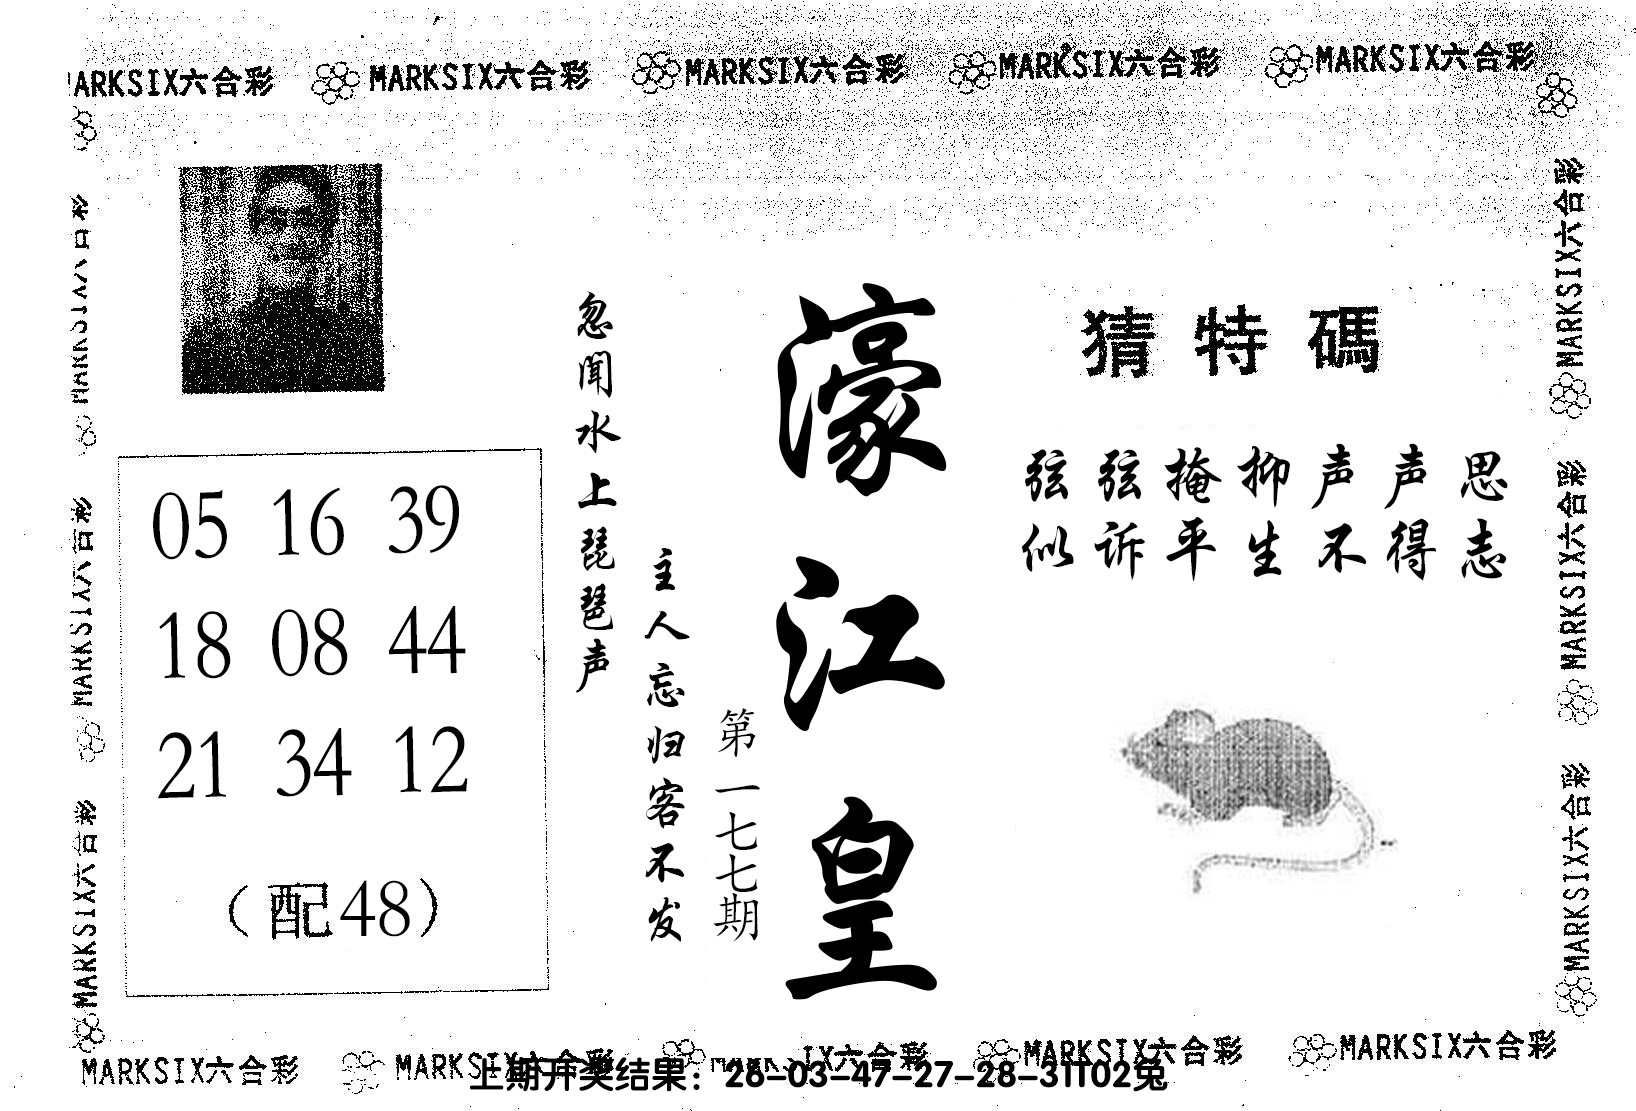 MARKSIX六合彩 MARKSIX六合彩 MARKSIX六合彩 MARKSIX六合彩 MARKSIX六合彩
猜特碼
弦弦掩抑声声思
似诉平生不得志
濠江皇
第一七七期
忽闻水上琵琶声
主人忘归客不发
05 16 39
18 08 44
21 34 12
（配48）
MARKSIX六合彩
MARKSIX六合彩
MARKSIX六合彩
MARKSIX六合彩
MARKSIX六合彩
MARKSIX六合彩
MARKSIX六合彩 MARKSIX六合彩 MARKSIX六合彩 MARKSIX六合彩 MARKSIX六合彩
上期开奖结果：26-03-47-27-28-31T02兔